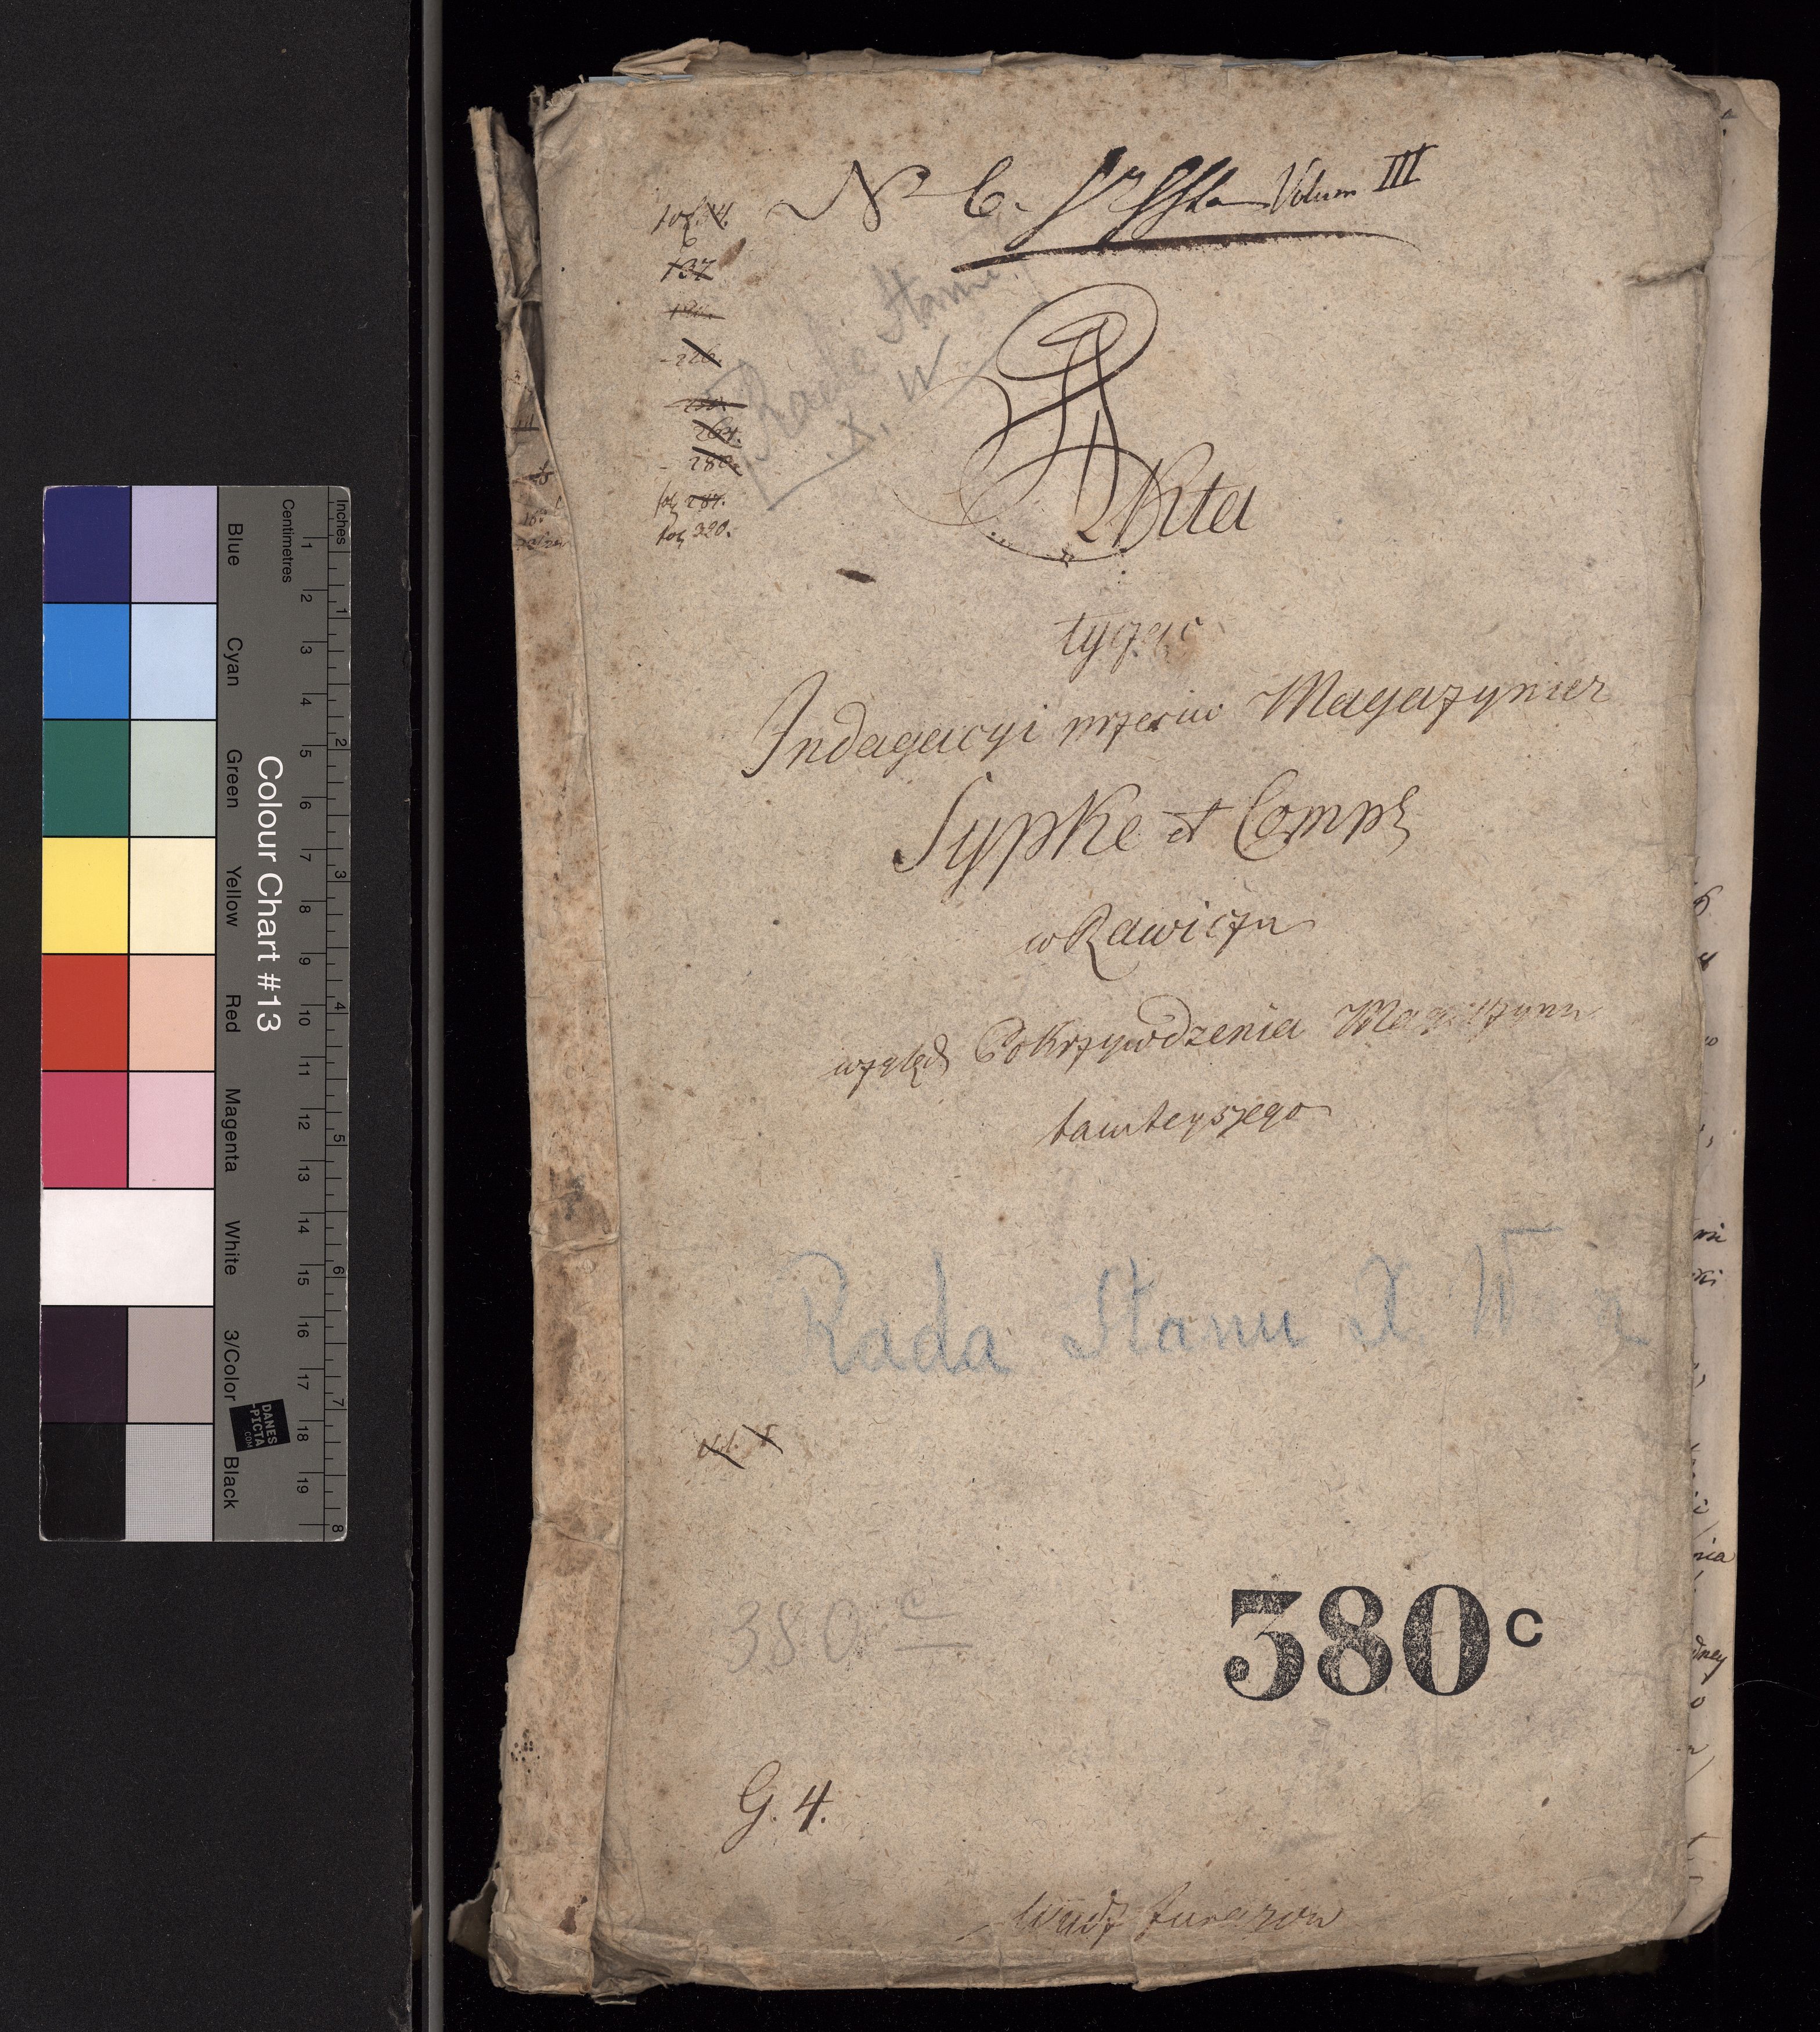 Volum III
fol. 4.
6
137
226.
264.
280.
fol 287.
fol 320.
Rada Stanu
X. W
Akta
tyczące
Indagacyi przeciw Magazynier
Sypke et Comp
w Rawiczu
względ Pokrzywdzenia Magazynu
tamteyszego
Rada Stanu X W
380 c
380 c
G. 4.
Colour Chart #13
Blue
Cyan
Green
Yellow
Red
Magenta
White
3/Color
Black
Inches
1
2
3
4
5
6
7
8
Centimetres
1
2
3
4
5
6
7
8
9
10
11
12
13
14
15
16
17
18
19
DANES
-PICTA
.COM